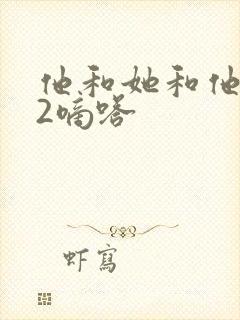 他和她和他
2嘀嗒
虾写